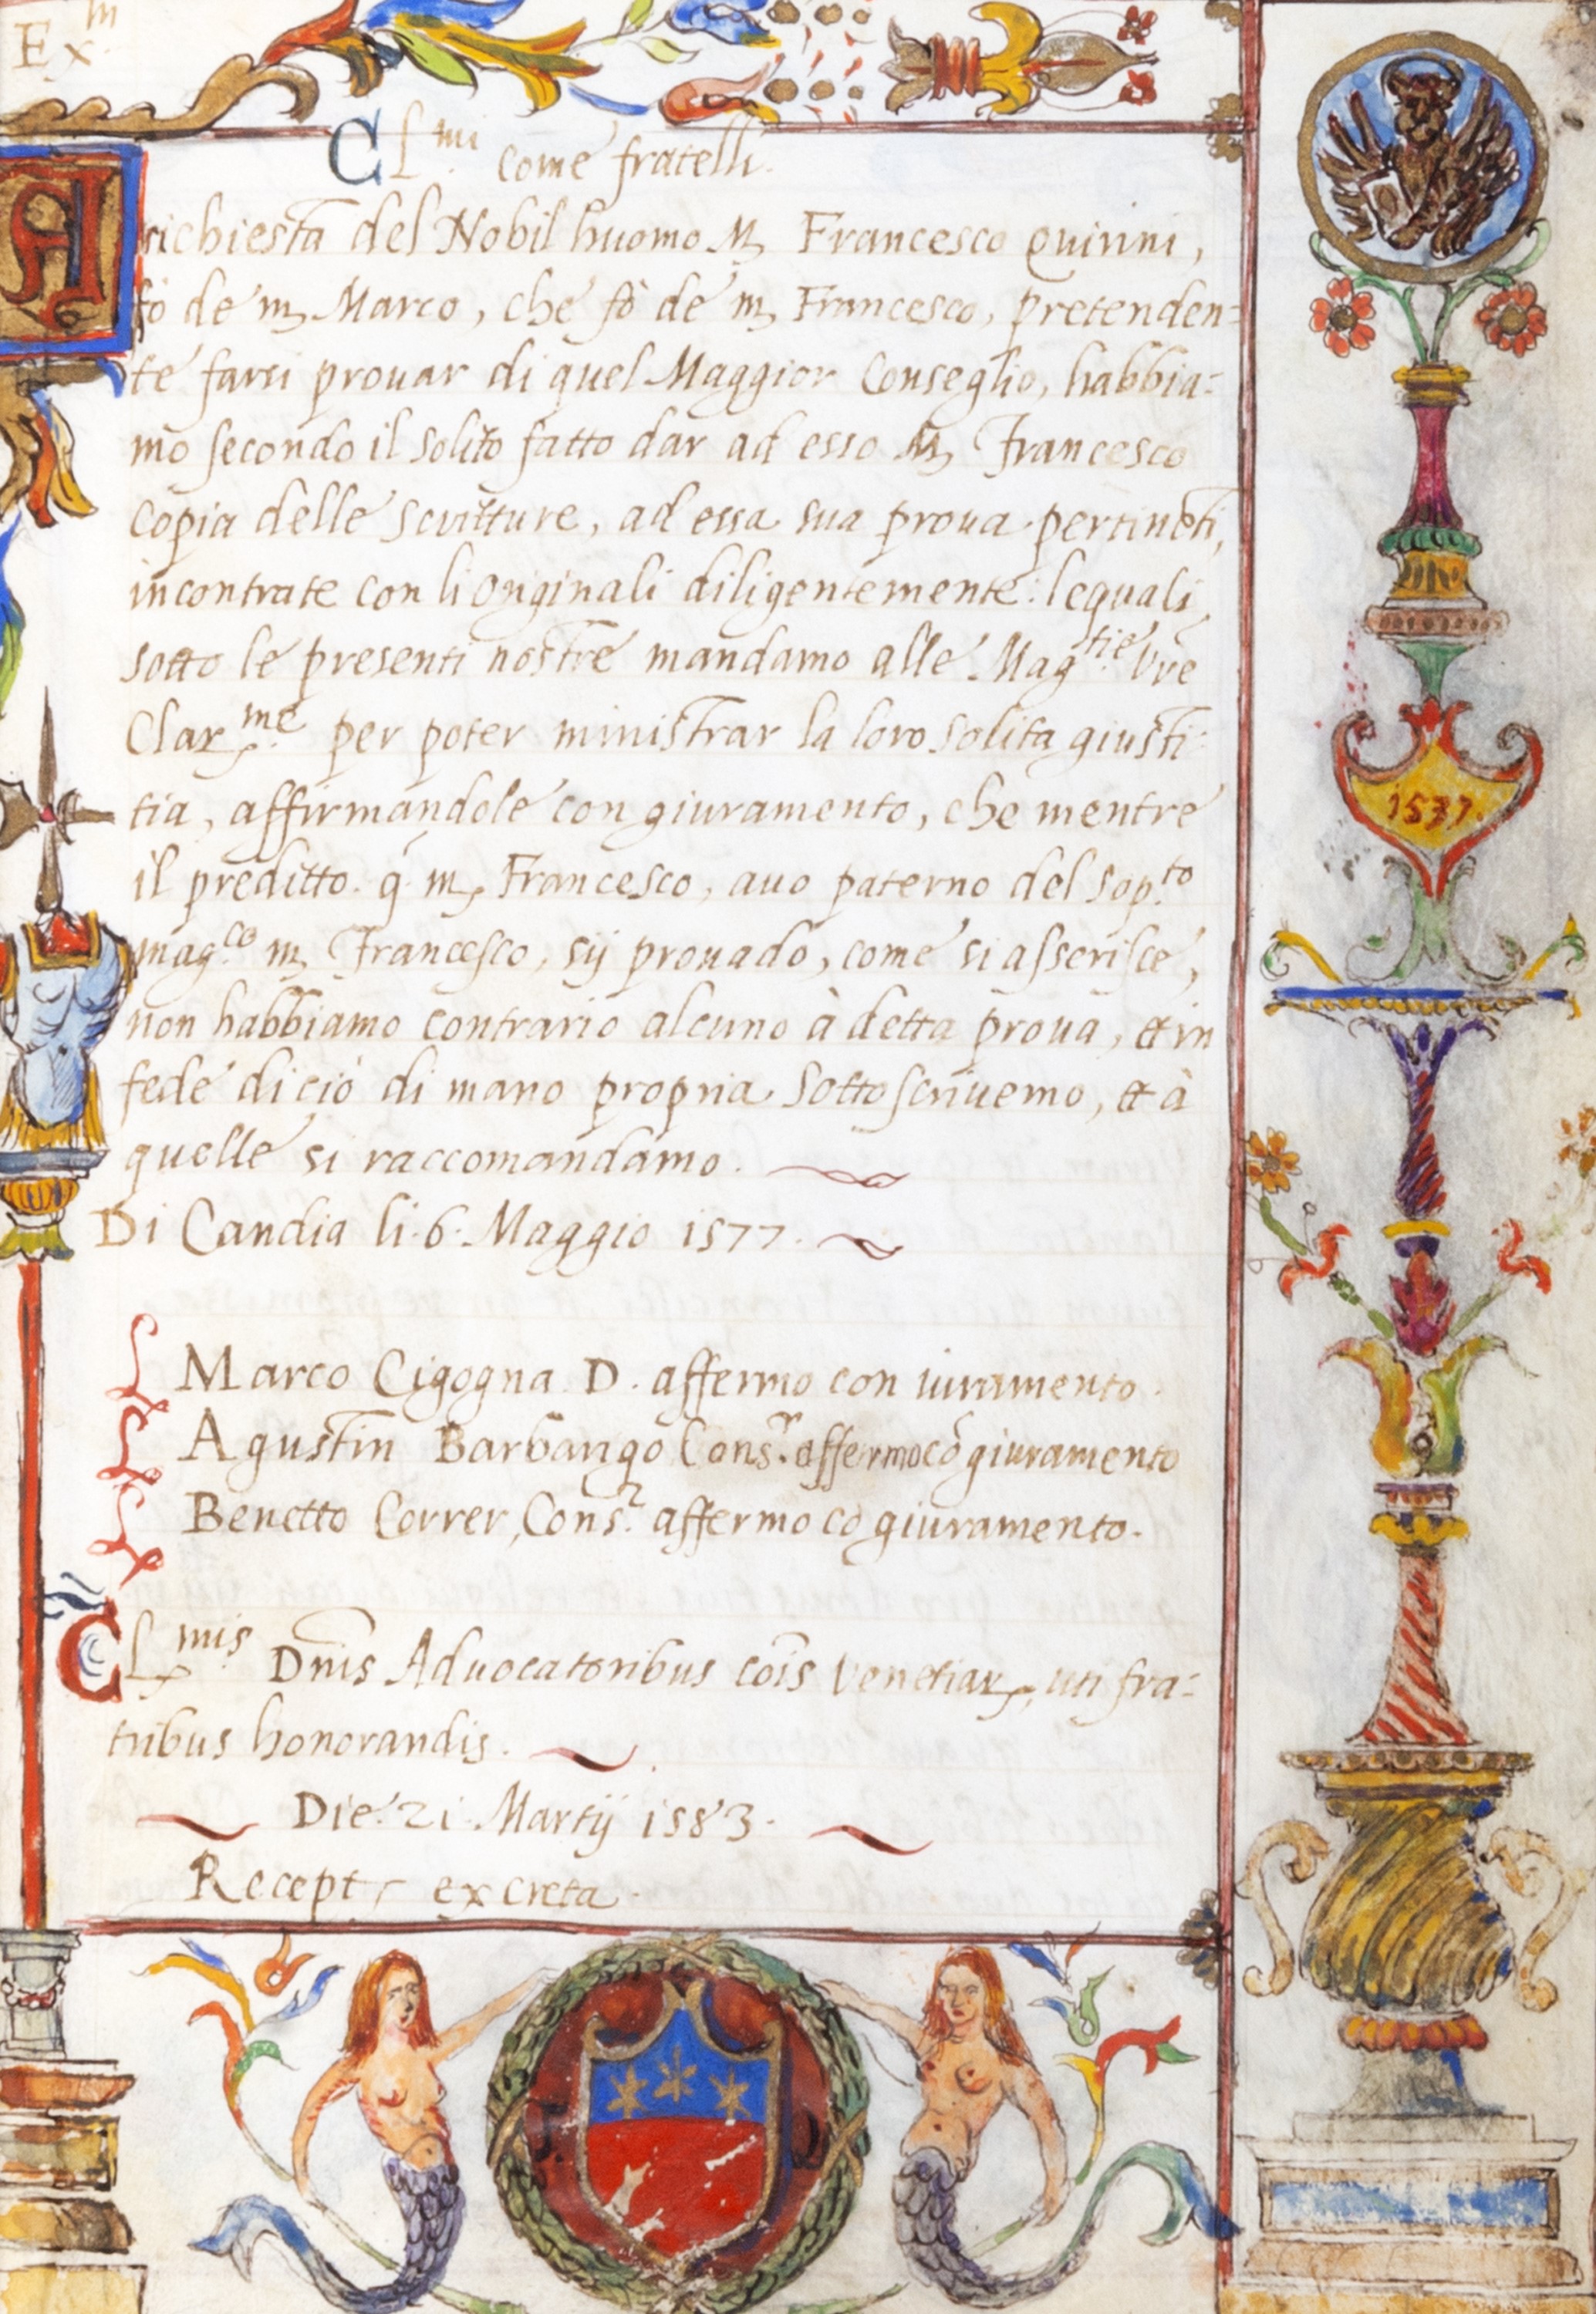 Ex.m
Cl.mi come fratelli.
A richiesta del Nobil huomo M. Francesco Quirini,
fò de m. Marco, che fò de m. Francesco, pretenden=
te farsi prouar di quel Maggior Conseglio, habbia=
mo secondo il solito fatto dar ad esso M. Francesco
Copia delle scritture, ad essa sua proua pertinēti,
incontrate con li originali diligentemente: lequali
sotto le presenti nostre mandamo alle Mag.tie Vre
Clar.me per poter ministrar la loro solita giusti=
tia, affirmandole con giuramento, che mentre
il preditto q. m. Francesco, auo paterno del sop.to
mag.co m. Francesco, sij prouado, come si asserisce,
non habbiamo contrario alcuno à detta proua, et in
fede di ciò di mano propria sottoscriuemo, et à
quelle si raccomandamo.
Di Candia li. 6. Maggio 1577.
1537.
Marco Cigogna D. affermo con iuramento.
Agustin Barbarigo Cons.r affermo cō giuramento
Benetto Correr, Cons.r affermo cō giuramento.
Cl.mis Dnis Aduocatoribus cōis Venetiar., uti fra=
tribus honorandis.
Die. 21. Martij 1583.
Recept. ex creta.